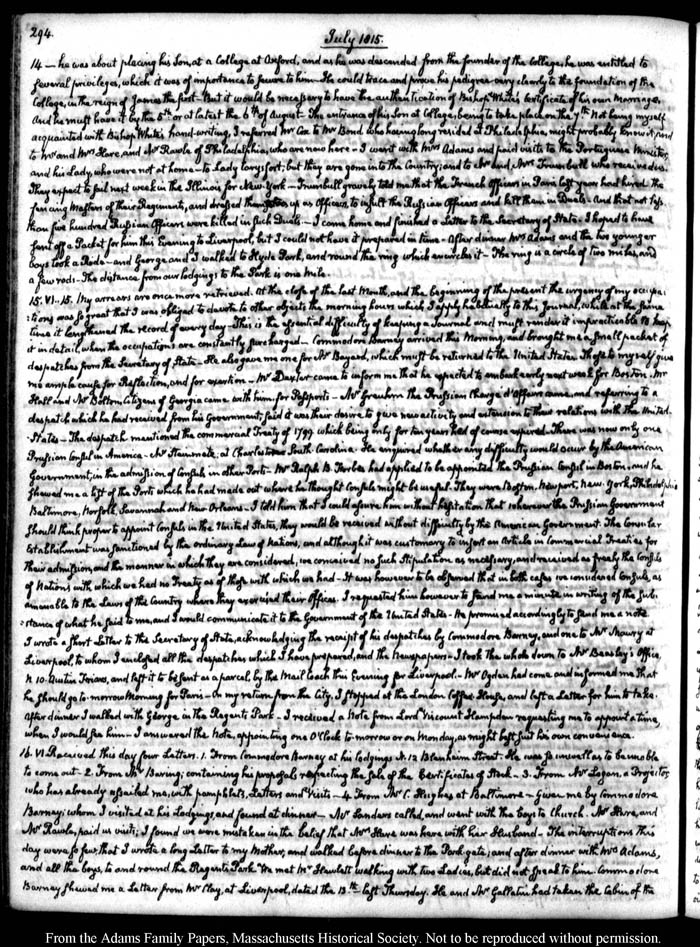 294.
July 1815.
14 — he was about placing his Son, at a College at Oxford, and as he was descended from the founder of the College, he was entitled to
several privileges, which it was of importance to secure to him. He could trace and prove his pedigree very clearly to the foundation of the
College, in the reign of James the first — But it would be necessary to have the authentication of Bishop White's certificate of his own Marriage.
And he must have it by the 5th. or at latest the 6th. of August. The entrance of his Son at College, being to take place on the 7th. Not being myself
acquainted with Bishop White's hand-writing, I referred Mr Cox to Mr Bond who having long resided at Philadelphia, might probably know it; and
to Mr and Mrs Hare, and Mr Rawle of Philadelphia, who are now here — I went with Mrs Adams and paid visits to the Portuguese Minister,
and his lady, who were not at home — to Lady Corysfort; but they are gone into the Country; and to Mr and Mrs Trumbull who received us.
They expect to sail next week in the Illinois for New-York — Trumbull gravely told me that the French Officers in Paris last year had hired the
fencing Masters of their Regiments, and dressed themselves up as Officers, to insult the Russian Officers and kill them in Duels — And that not less
than five hundred Russian Officers were killed in such Duels — I came home and finished a Letter to the Secretary of State — I hoped to have
sent off a Packet for him this Evening to Liverpool, but I could not have it prepared in time — After dinner Mrs Adams and the two younger
boys took a Ride — and George and I walked to Hyde Park, and round the ring which encircles it — The ring is a circle of two miles, and
a few rods — The distance from our lodgings to the Park is one Mile.
15. VI.–15. My arrears are once more retrieved. At the close of the last Month, and the beginning of the present the urgency of my occupa-
:tions was so great that I was obliged to devote to other objects the morning hours which I apply habitually to this Journal, while at the same
time it lengthened the record of every day — This is the essential difficulty of keeping a Journal and must render it impracticable to keep
it in detail, when the occupations are constantly surcharged — Commodore Barney arrived this Morning, and brought me a small packet of
despatches from the Secretary of State — He also gave me one for Mr Bayard, which must be returned to the United States. Those to myself give
me ample cause for Reflection, and for exertion — Mr Dexter came to inform me that he expected to embark early next week for Boston. Mr
Hall and Mr Bolton citizens of Georgia came with him for Passports — Mr Greuhm the Prussian Chargé d'Affaires came, and referring to a
despatch which he had received from his Government, said it was their desire to give new activity and extension to their relations with the United-
-States — The despatch mentioned the commercial Treaty of 1799 which being only for ten years had of course expired. There was now only one
Prussian Consul in America — Mr at Charlestown South-Carolina. He enquired whether any difficulty would occur by the American
Government, in the admission of Consuls in other Ports — Mr Ralph B. Forbes had applied to be appointed the Prussian Consul in Boston, and he
shewed me a list of the Ports which he had made out where he thought Consuls might be useful. They were Boston, Newport, New-York, Philadelphia
Baltimore, Norfolk, Savannah and New-Orleans — I told him that I could assure him without hesitation that wherever the Prussian Government
should think proper to appoint Consuls in the United States, they would be received without difficulty by the American Government. The Consular
Establishment was sanctioned by the ordinary Law of Nations, and although it was customary to insert an Article in Commercial Treaties for
their admission, and the manner in which they are considered, we conceived no such stipulation as necessary, and received as freely the Consuls
of Nations with which we had no Treaty as of those with which we had — It was however to be observed that in both cases we considered Consuls, as
amenable to the Laws of the Country where they exercised their Offices. I requested him however to send me a minute in writing of the sub-
:stance of what he said to me, and I would communicate it to the Government of the United States — He promised accordingly to send me a note.
I wrote a short Letter to the Secretary of State, acknowledging the receipt of his despatches by Commodore Barney, and one to Mr Maury at
Liverpool, to whom I enclosed all the despatches which I have prepared, and the Newspapers — I took the whole down to Mr Beasley's Office,
N. 10. Austin Friars, and left it to be sent as a parcel, by the Mail Coach this Evening for Liverpool — Mr Ogden had come and informed me that
he should go to-morrow Morning for Paris — On my return from the City, I stopped at the London Coffee House, and left a Letter for him to take.
After dinner I walked with George in the Regents Park — I received a Note from Lord Viscount Hampden requesting me to appoint a time,
when I would see him — I answered the Note, appointing one O'Clock to-morrow or on Monday, as might best suit his own convenience.
16. VI. Received this day four Letters. 1. From Commodore Barney at his lodgings N. 12 Blenheim Street. He was so unwell as to be unable
to come out — 2. From Mr Baring; containing his proposals respecting the sale of the Certificates of Stock — 3. From Mr Logan, a Projector,
who has already assailed me, with pamphlets, Letters and Visits — 4. From Mr C. Hughes at Baltimore — Given me by Commodore
Barney; whom I visited at his Lodgings, and found at dinner — Mr Sanders called, and went with the boys to Church. Mr Hare, and
Mr Rawle, paid us visits; I found we were mistaken in the belief that Mrs Hare was here with her Husband — The interruptions this
day were so few, that I wrote a long Letter to my Mother, and walked before dinner to the Park gate; and after dinner with Mrs Adams,
and all the boys, to and round the Regents Park. We met Mr Hewlett walking with two Ladies, but did not speak to him. Commodore
Barney shewed me a Letter from Mr Clay, at Liverpool, dated the 13th. last Thursday. He and Mr Gallatin had taken the Cabin of the
From the Adams Family Papers, Massachusetts Historical Society. Not to be reproduced without permission.